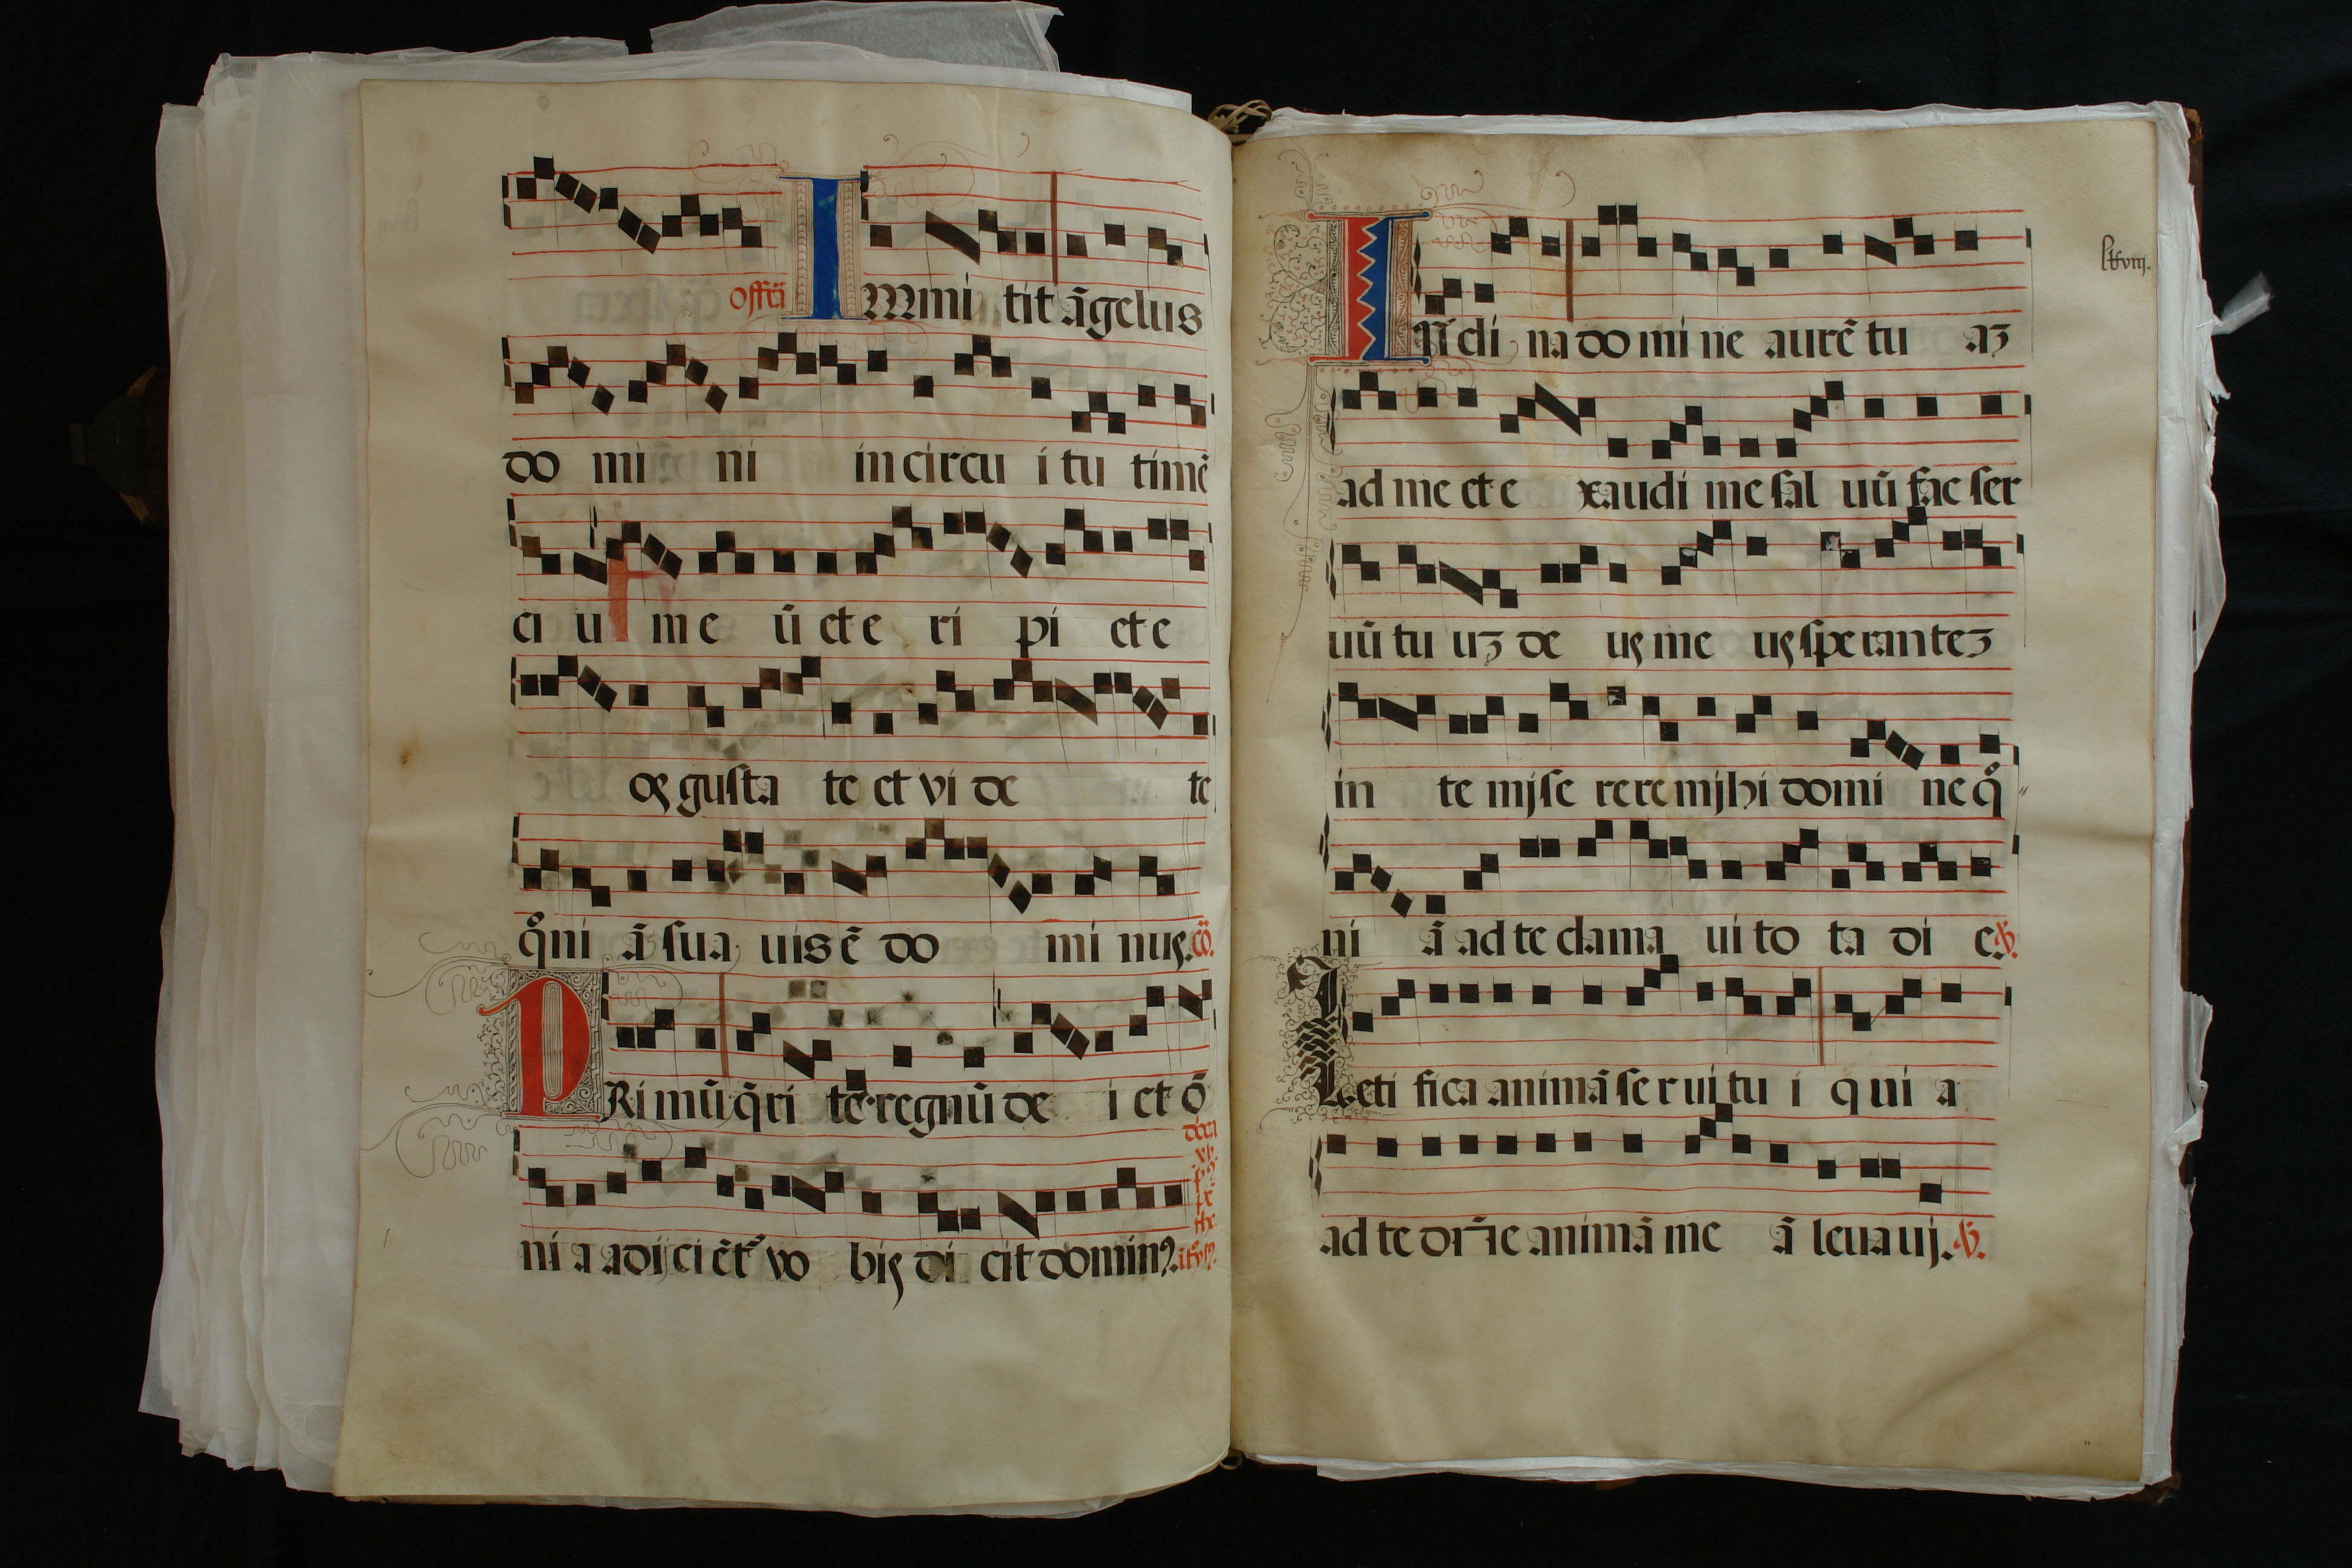 offm̄ Immi tit āgelus
do mi ni in circu i tu timē
ci u me ū et e ri pi et e
os gusta te et vi de te
q̊ni ā sua uis ē do mi nus. cō.
PRi mū q̄ri te regnū de i et ō
ni a adij ci ēt² vo bis di cit domin⁹.
lxviij.
INcli na do mi ne aurē tu aꝫ
ad me et e xaudi me sal uū fac ser
uū tu uꝫ de us me us speranteꝫ
in te mise rere mihi domi ne q̊
ni ā ad te clama ui to ta di e ℣.
Leti fica animā se r ui tu i q ui a
ad te dn̄e animā me ā leuaui. ℣.